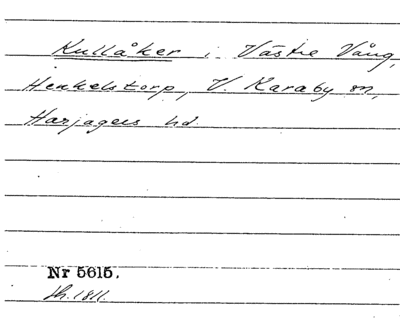 Kullåker i Västre Vång,
Henkelstorp, V. Karaby sn,
Harjagers hd.
Nr 5615.
Sk. 1811.